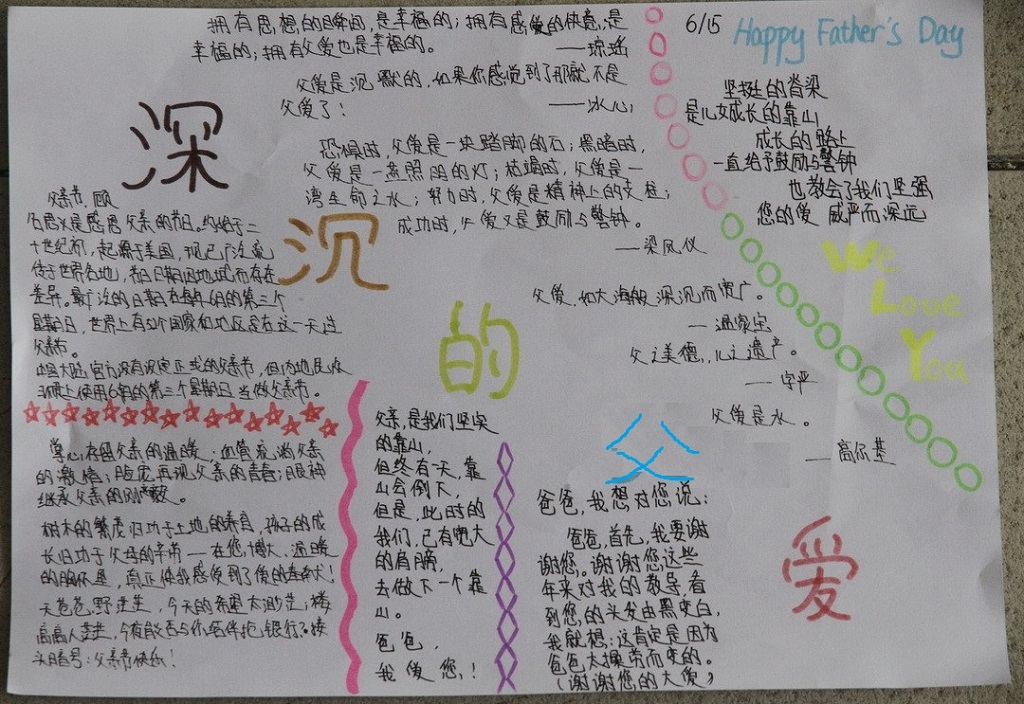 拥有思想的瞬间,是幸福的;拥有感爱的快意,是
幸福的;拥有父爱也是幸福的。
——琼瑶
父爱是沉默的,如果你感觉到了那就不是
父爱了!
——冰心
恐惧时,父爱是一块踏脚的石;黑暗时,
父爱是一盏照明的灯;枯竭时,父爱是一
湾生命之水;努力时,父爱是精神上的支柱;
成功时,父爱又是鼓励与警钟。
——梁凤仪
父爱,如大海般深沉而宽广。
父之美德,儿之遗产。
——字严
父爱是水。
——高尔基
6/15 Happy Father's Day
坚挺的脊梁
是儿女成长的靠山
成长的路上
一直给予鼓励与警钟
也教会了我们坚强
您的爱 威严而深远
We
Love
You
深
沉
的
父
爱
父亲节,顾
名思义是感恩父亲的节日。约始于二
十世纪初,起源于美国,现已广泛流
传于世界各地,节日日期因地域而存在
差异。最广泛的日期在每年6月的第三个
星期日,世界上有52个国家和地区是在这一天过
父亲节。
中国大陆,官方没有设定正式的父亲节,但内地民众
习惯上使用6月的第三个星期日当做父亲节。
掌心存留父亲的温暖;血管流淌父亲
的激情;脸庞再现父亲的青春;眼神
继承父亲的刚毅。
树木的繁茂归功于土地的养育,孩子的成
长归功于父母的辛苦——在您博大、温暖
的胸怀里,真正使我感受到了爱的
天苍苍,野茫茫,今天的希望太渺茫;楼
高高人茫茫,今有能否与你结伴抢银行?接
头暗号:父亲节快乐!
父亲,是我们坚实
的靠山,
但终有一天,靠
山会倒下,
但是,此时的
我们,已有宽大
的肩膀,
去做下一个靠
山。
爸爸,
我爱您!
爸爸,我想对您说:
爸爸,首先,我要谢
谢您。谢谢您这些
年来对我的教导,看
到您的头发由黑变白,
我就想:这肯定是因为
爸爸太操劳而变的。
(谢谢您的大爱)